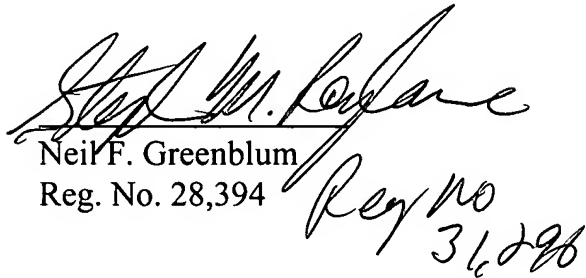 Steph M. Roylance
Neil F. Greenblum
Reg. No. 28,394
Reg no
31,296